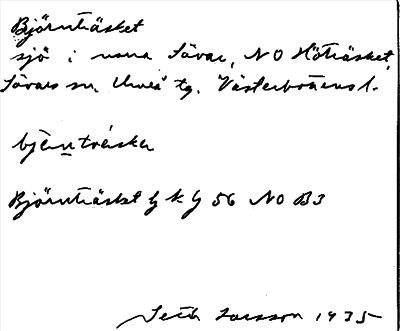 Björnträsket
sjö i norra Sävar, NO Hötträsket,
Sävars sn. Umeå tg. Västerbottens l.
bjèːntrǽska
Björnträsket gkg 56 NO B3
Seth Larsson 1935